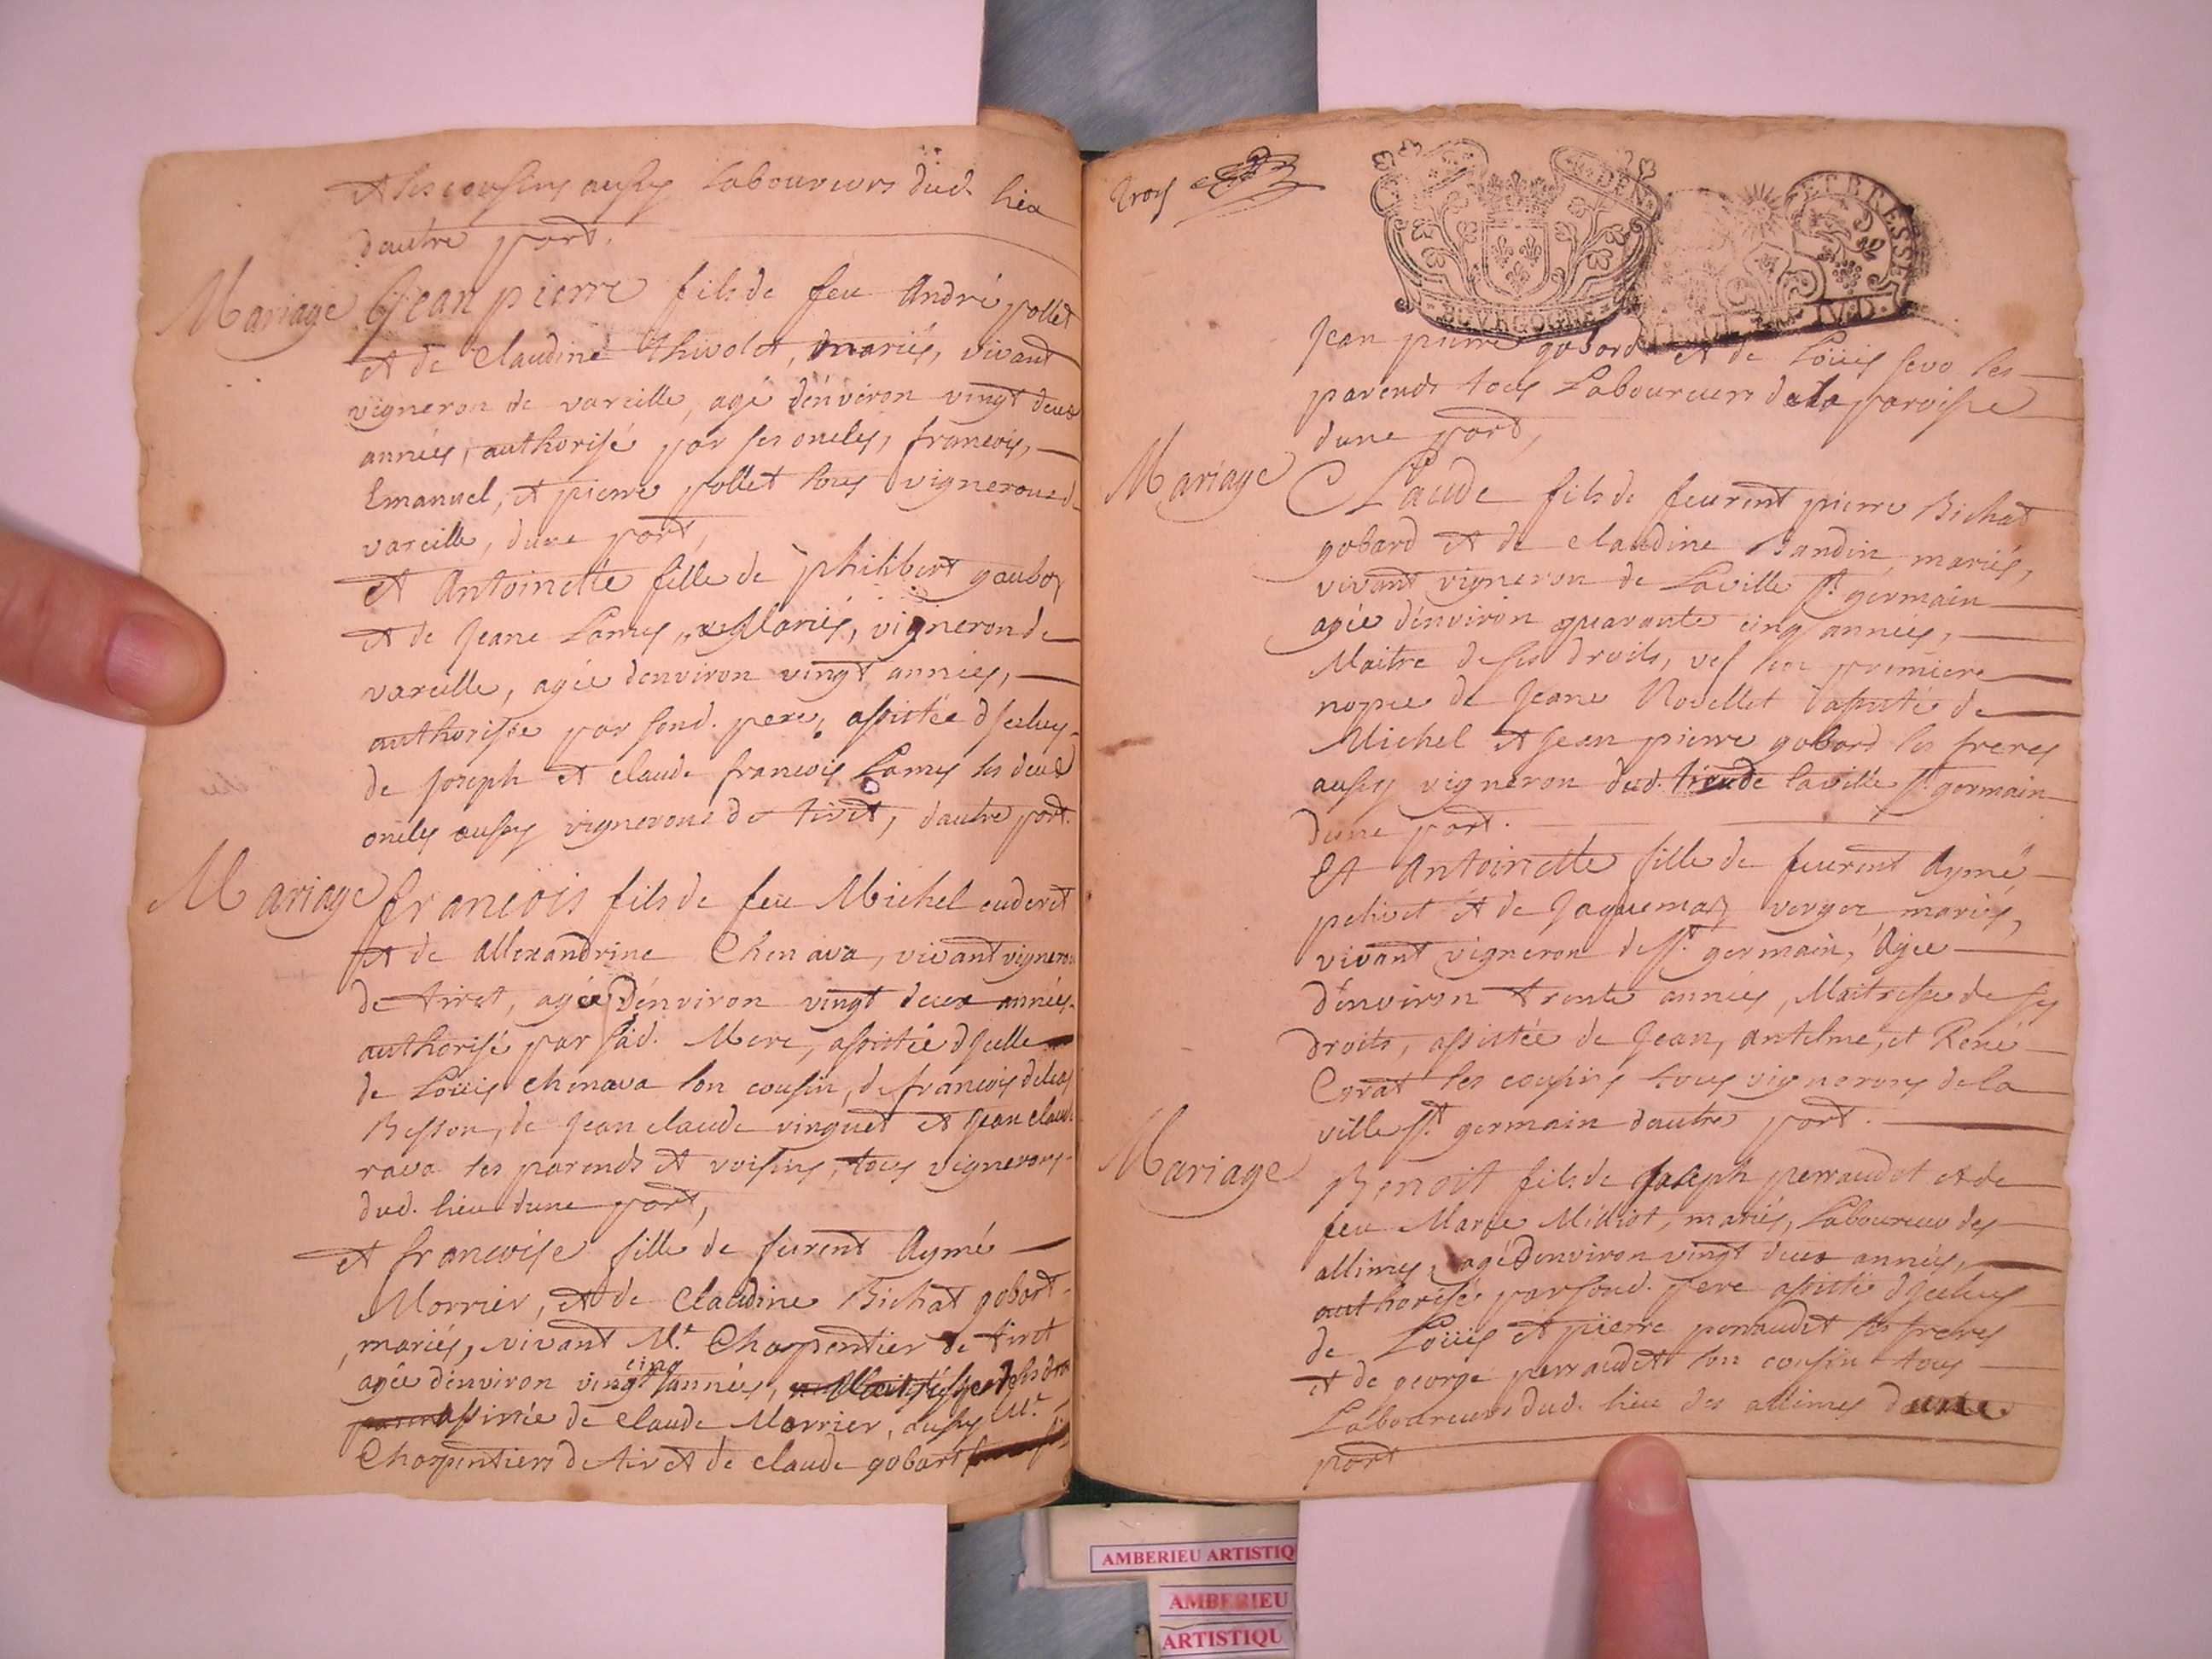 et ses cousins aussy Laboureurs dud. lieu
dautre part.
Mariage Jean pierre fils de feu André pollet
et de Claudine thivolet, mariés, vivant
vigneron de vareille, agé d'énviron vingt deux
années, authorisé par ses oncles, francois,
Emanuel, et pierre pollet tous vignerons d
vareille, dune part,
et Antoinette fille de philibert gaubox
et de Jeane Lamy, Mariés, vigneron de
vareille, agée denviron vingt années,
authorisée par sond. pere, assistée d'jceluy
de Joseph et claude francois Lamy ses deux
oncles aussy vignerons de tiret, dautre part.
Mariage francois fils de feu Michel cuderet
et de allexandrine Chenava, vivant vigneron
de tiret, agée d'énviron vingt deux années
authorisé par sad. Mere, assistée d'jcelle
de Loüis chenava son cousin, de francois
Besson, de Jean claude vinguet et Jean claude
rava ses parends et voisins, tous vignerons
dud. lieu dune part,
et francoise fille de furent Aymé
Morrier, et de Claudine Bichat gobart
mariés, vivant M.e Charpentier de tiret
agée d'environ vingt cinq années,
assistée de claude Morrier, aussy M.e
Charpentiers de tiret de claude gobart
Troy
DEN.
BOVRGOGNE
ET BRESSE
IV.D.
Jean pierre gobard et de Loüis sevo ses
parends tous Laboureurs dela paroisse
dune part,
Mariage Claude fils de feurent pierre Bichat
gobard et de claudine Bandin, mariés,
vivant vigneron de Laville st. germain
agée d'énviron quarante cinq années,
Maitre de ses droits, vef en premiere
nopce de Jeane Rovellet assisté de
Michel et Jean pierre gobard ses freres
aussy vigneron dud. lieu de laville st. germain
dune part.
Et Antoinette fille de feurent Aymé
petivet et de Jaquema verger, mariés,
vivant vigneron de st. germain, Agée
d'énviron trente années, Maitresse de ses
droits, assistée de Jean, antelme, et René
Corat ses cousins tous vignerons dela
ville st. germain dautre part.
Mariage Benoit fils de Joseph perraudet et de
feu Marie Milliot, mariés, Laboureur des
allimes, agé d'énviron vingt deux années,
authorisée par sond. pere assisté d'jceluy
de Loüis et pierre perraudet ses freres
et de george perraudet son cousin tous
Laboureurs dud. lieu des allimes dune
part
AMBERIEU ARTISTIQ
AMBERIEU
ARTISTIQU